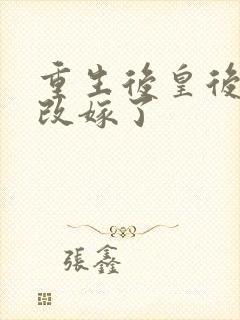 重生後皇後
改嫁了
張鑫